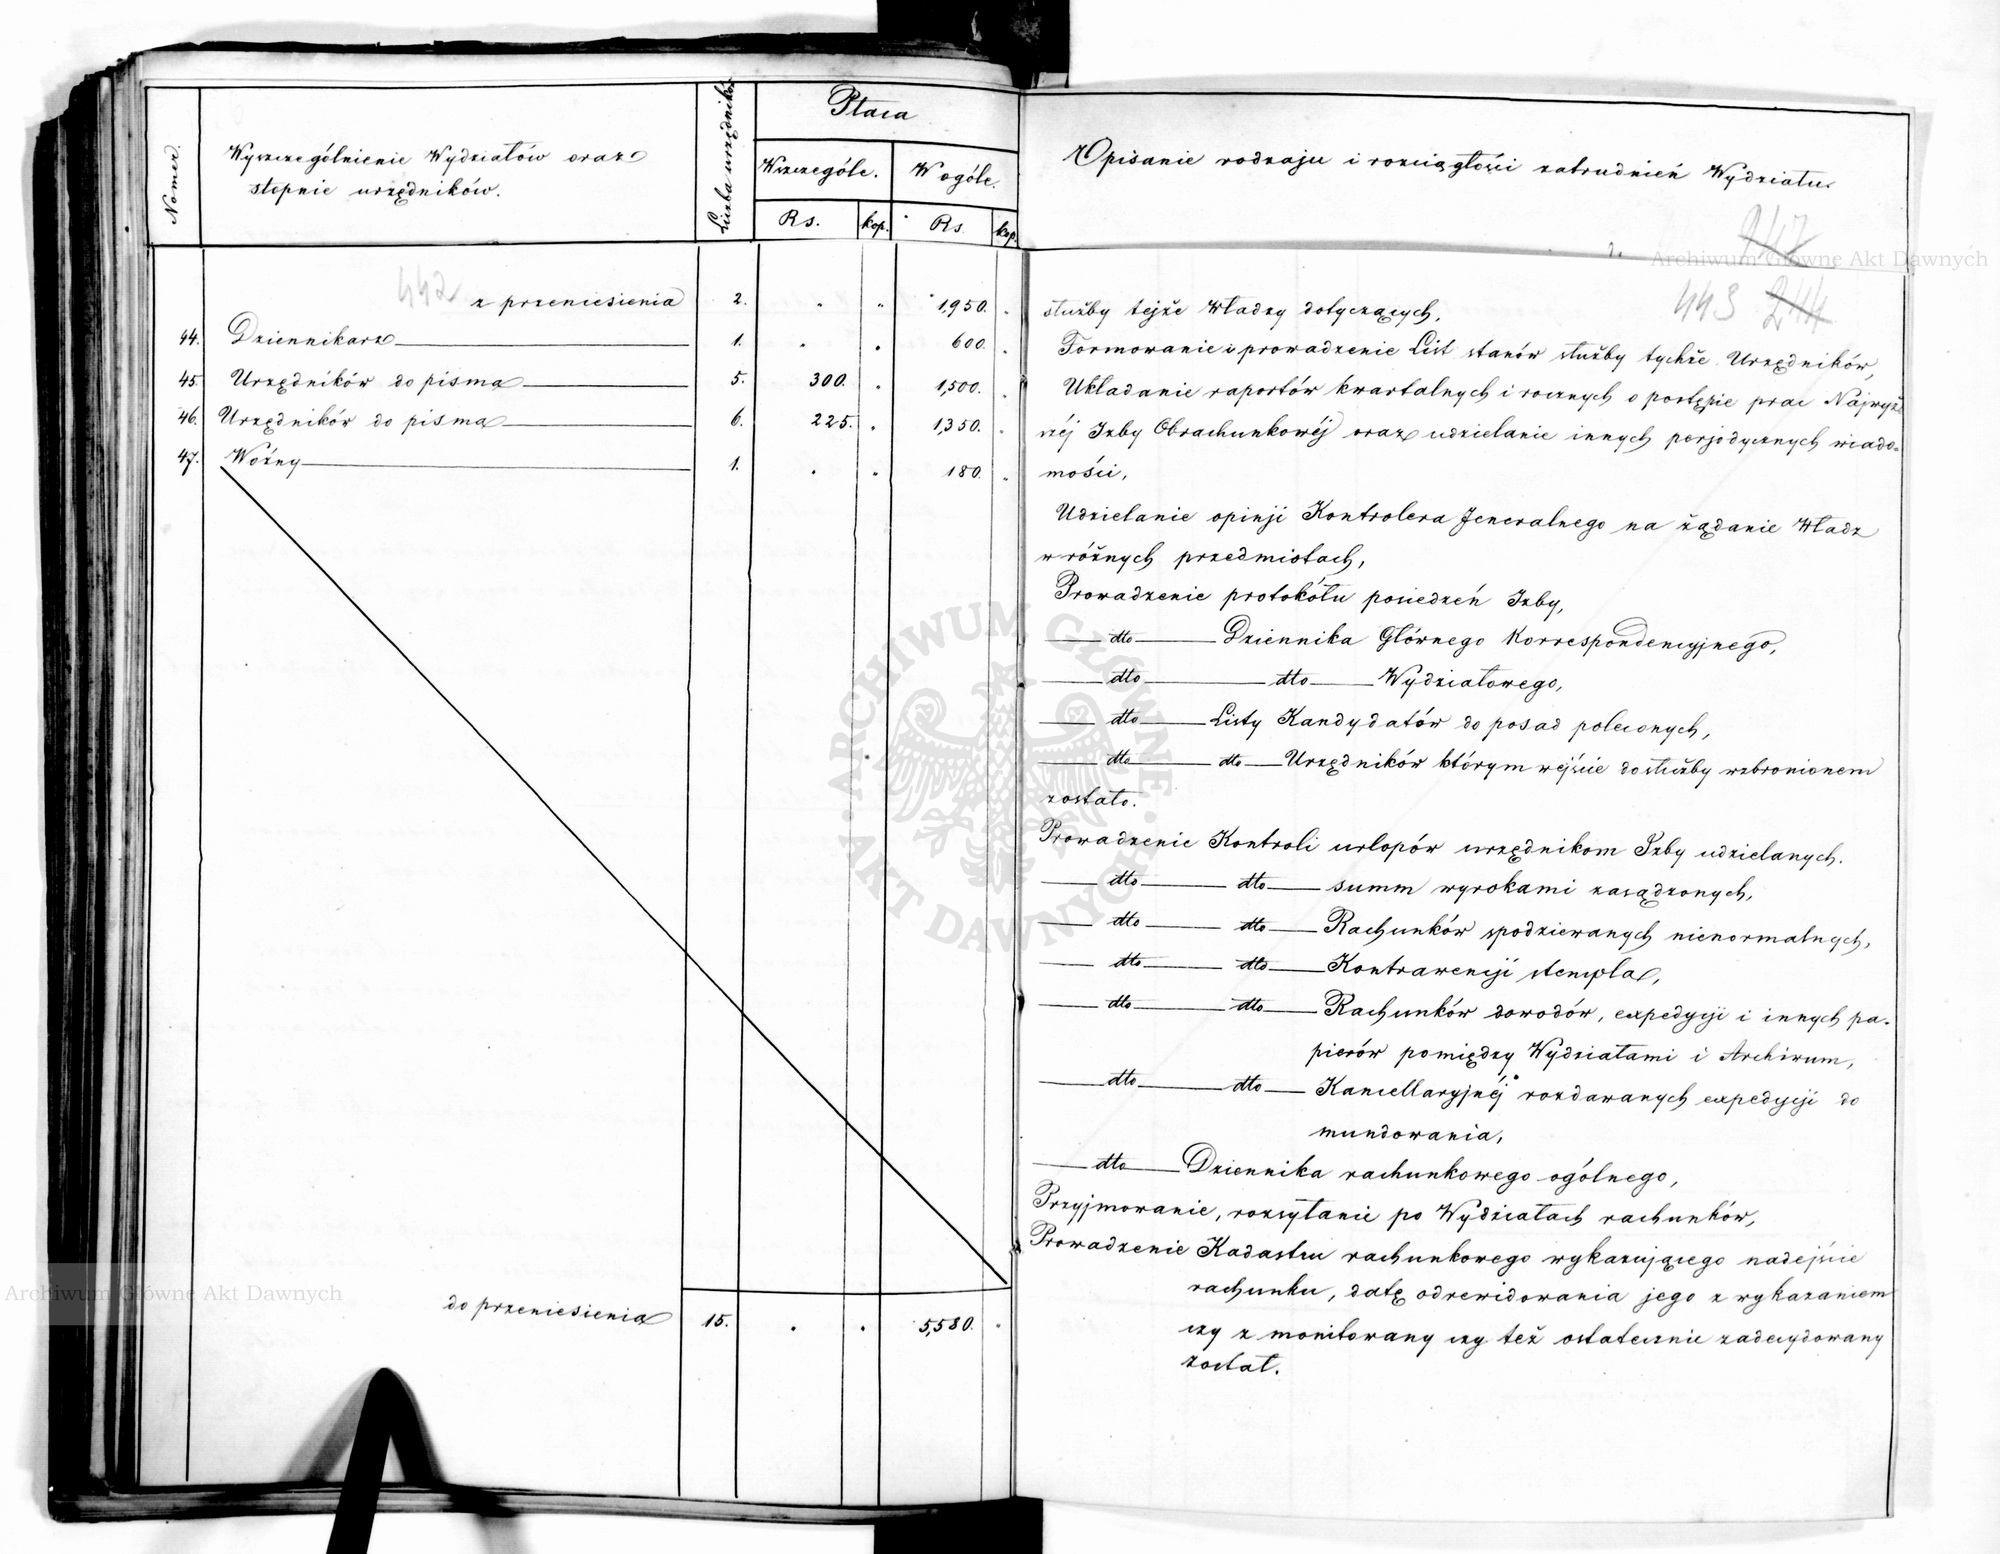 Nomer.
Wyszczególnienie Wydziałów oraz
stopnie urzędników.
Liczba urzędników
Płaca
Wszczególe.
W ogóle.
Rs.
kop.
Rs.
kop.
442
z przeniesienia 2. " " 1,950. "
44. Dziennikarz 1. " " 600. "
45. Urzędników do pisma 5. 300. " 1,500. "
46. Urzędników do pisma 6. 225. " 1,350. "
47. Woźny 1. " " 180. "
do przeniesienia 15. " " 5,580. "
Opisanie rodzaju i rozciągłości zatrudnień Wydziału.
247
443 244
służby tejże Władzy dotyczących,
Formowanie i prowadzenie List stanów służby tychże Urzędników,
Układanie raportów kwartalnych i rocznych o postępie prac Najwyż
széj Izby Obrachunkowéj oraz udzielanie innych perjodycznych wiado-
mości,
Udzielanie opinji Kontrolera Jeneralnego na żądanie Władz
w różnych przedmiotach,
Prowadzenie protokółu posiedzeń Izby,
dto Dziennika Głównego Korrespondencyjnego,
dto dto Wydziałowego,
dto Listy Kandydatów do posad poleconych,
dto dto Urzędników którym wejście do służby wzbronionem
zostało.
Prowadzenie Kontroli urlopów urzędnikom Izby udzielanych.
dto dto summ wyrokami zasądzonych,
dto dto Rachunków spodziewanych nienormalnych,
dto dto Kontrawencji stempla,
dto dto Rachunków dowodów, expedycji i innych pa-
pierów pomiędzy Wydziałami i Archiwum,
dto dto Kancellaryjnéj rozdawanych expedycji do
mundowania,
dto Dziennika rachunkowego ogólnego,
Przyjmowanie, rozsyłanie po Wydziałach rachunków,
Prowadzenie Kadastru rachunkowego wykazującego nadejście
rachunku, datę odrewidowania jego z wykazaniem
czy z monitowany czy też ostatecznie zadecydowany
został.
Archiwum Główne Akt Dawnych
Archiwum Główne Akt Dawnych
ARCHIWUM GŁÓWNE
AKT DAWNYCH